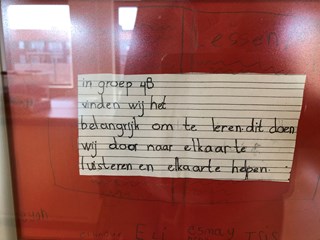 Lessen
in groep 4B
vinden wij het
belangrijk om te leren. dit doen
wij door naar elkaar te
luisteren en elkaar te helpen.